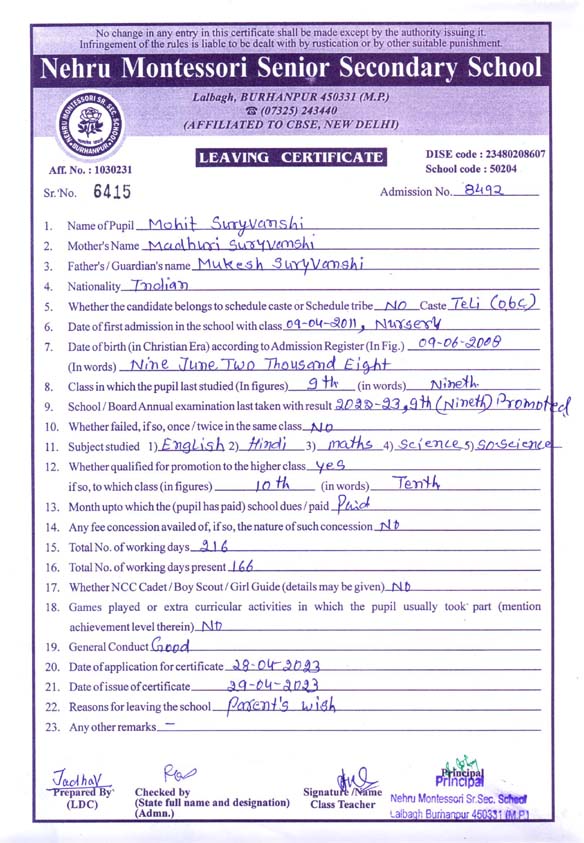 No change in any entry in this certificate shall be made except by the authority issuing it.
Infringement of the rules is liable to be dealt with by rustication or by other suitable punishment.
Nehru Montessori Senior Secondary School
Lalbagh, BURHANPUR 450331 (M.P.)
☎ (07325) 243440
(AFFILIATED TO CBSE, NEW DELHI)
NEHRU MONTESSORI SR. SEC. SCHOOL
BURHANPUR
LEAVING CERTIFICATE
DISE code : 23480208607
School code : 50204
Aff. No. : 1030231
Sr. No. 6415
Admission No. 8492
1. Name of Pupil Mohit Suryvanshi
2. Mother's Name Madhuri Suryvanshi
3. Father's / Guardian's name Mukesh Suryvanshi
4. Nationality Indian
5. Whether the candidate belongs to schedule caste or Schedule tribe NO Caste Teli (obc)
6. Date of first admission in the school with class 09-04-2011, Nursery
7. Date of birth (in Christian Era) according to Admission Register (In Fig.) 09-06-2008
(In words) Nine June Two Thousand Eight
8. Class in which the pupil last studied (In figures) 9th (in words) Nineth
9. School / Board Annual examination last taken with result 2022-23, 9th (Nineth) Promoted
10. Whether failed, if so, once / twice in the same class NO
11. Subject studied 1) English 2) Hindi 3) maths 4) Science 5) SO.Science
12. Whether qualified for promotion to the higher class yes
if so, to which class (in figures) 10th (in words) Tenth
13. Month upto which the (pupil has paid) school dues / paid Paid
14. Any fee concession availed of, if so, the nature of such concession NO
15. Total No. of working days 216
16. Total No. of working days present 166
17. Whether NCC Cadet / Boy Scout / Girl Guide (details may be given) NO
18. Games played or extra curricular activities in which the pupil usually took part (mention
achievement level therein) NO
19. General Conduct Good
20. Date of application for certificate 28-04-2023
21. Date of issue of certificate 29-04-2023
22. Reasons for leaving the school Parent's wish
23. Any other remarks —
Jadhav
Prepared By
(LDC)
Checked by
(State full name and designation)
(Admn.)
Signature / Name
Class Teacher
Principal
Principal
Nehru Montessori Sr. Sec. School
Lalbagh Burhanpur 450331 (M.P.)